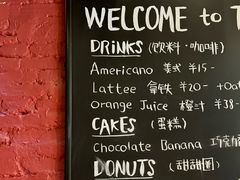 WELCOME to T
DRINKS (饮料·咖啡)
Americano 美式 ¥15-
Lattee 拿铁 ¥20- +Oat
Orange Juice 橙汁 ¥38-
CAKES (蛋糕)
Chocolate Banana 巧克
DONUTS (甜甜圈)